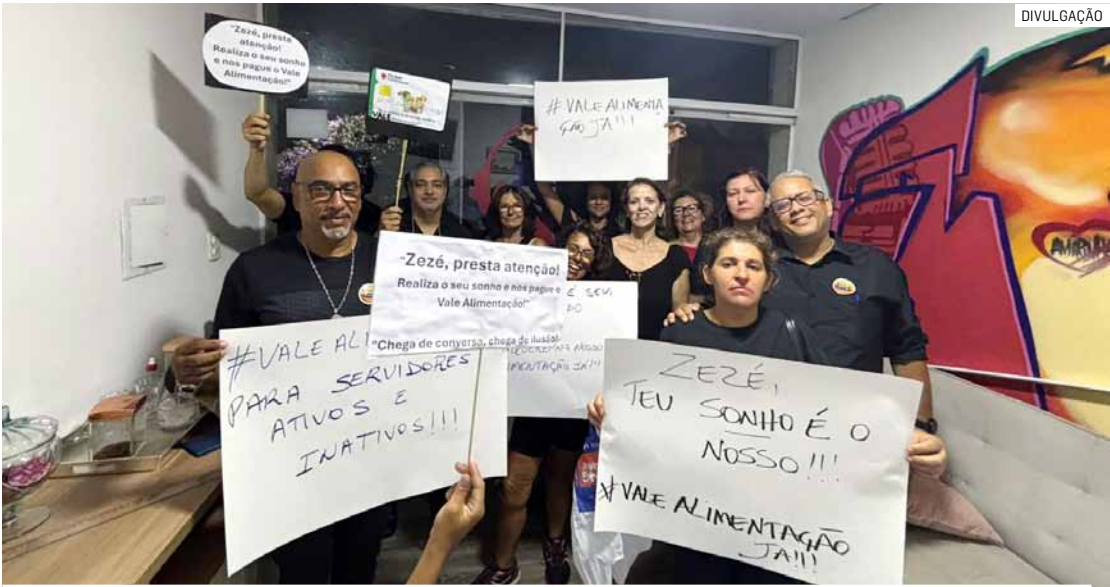 DIVULGAÇÃO
"Zezé, presta
atenção!
Realiza o seu sonho
e nos pague o Vale
Alimentação!"
#VALE ALIMENTA
ÇÃO JÁ!!!
"Zezé, presta atenção!
Realiza o seu sonho e nos pague o
Vale Alimentação!"
"Chega de converso, chega de ilusão!
É SEU
NOSSO
JÁ!!!
#VALE ALI
PARA SERVIDORES
ATIVOS E
INATIVOS!!!
ZEZÉ,
TEU SONHO É O
NOSSO!!!
#VALE ALIMENTAÇÃO
JA!!!